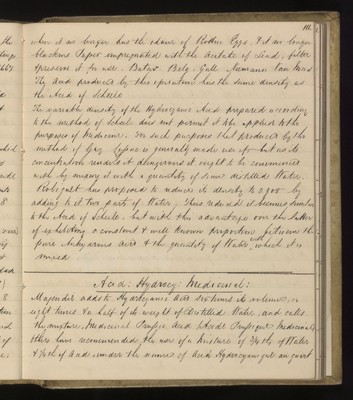 111.
when it no longer has the odour of Rotten Eggs & it no longer
blackens Paper impregnated with the Acetate of Lead, filter
& preserve it for use. Batur. Belg: Gall: Niemann Van Mons
The Acid produced by this operation has the same density as
the Acid of Scheele
The variable density of the Hydrocyanic Acid prepared according
to the method of Scheele does not permit it to be applied to the
purposes of Medicine. For such purposes that produced by the
method of Gay Lussac is generally made use of but as its
concentration renders it dangerous it ought to be
with by mixing it with a quantity of pure distilled Water.
Robiquet has proposed to reduce its density to 0,900 by
adding to it two parts of Water. Thus reduced it becomes similar
to the Acid of Scheele, but with this advantage over the latter
of exhibiting a constant & well known proportion between the
pure Anhydrous Acid & the quantity of Water with which it is
mixed
Acid: Hydrocy: Medicinal:
Magendie adds to Hydrocyanic Acid six times its volume, or
eight times & a half of its weight of Distilled Water, and calls
the mixture, Medicinal Prussic Acid (Acide Prussique Medicinal)
others have recommended the use of a mixture of of Water
& of Acid under the name of Acide Hydrocyanique au quart